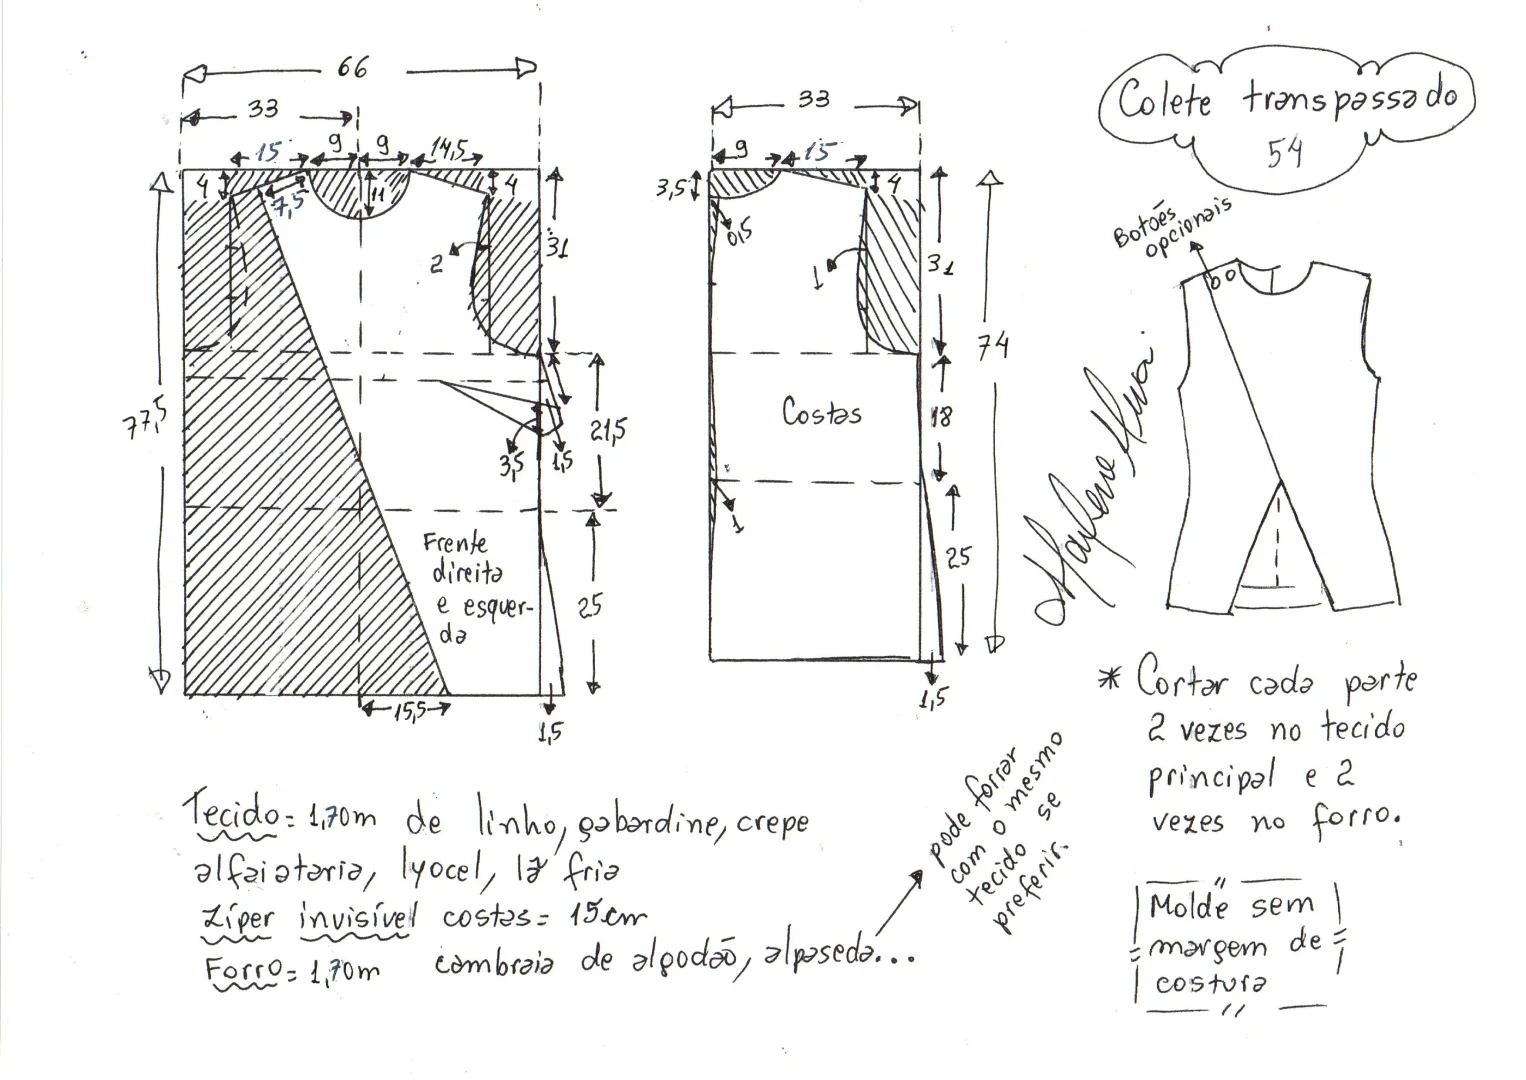 66
33
15
9
9
14,5
4
7,5
11
4
2
31
77,5
21,5
3,5
1,5
Frente
direita
e esquer-
da
25
15,5
1,5
33
9
15
3,5
4
0,5
1
31
74
Costas
18
1
25
1,5
Colete transpassado
54
Botões
opcionais
* Cortar cada parte
2 vezes no tecido
principal e 2
vezes no forro.
Molde sem
margem de
costura
Tecido= 1,70m de linho, gabardine, crepe
alfaiataria, lyocel, lã fria
Zíper invisível costas= 15cm
Forro= 1,70m cambraia de algodão, alpaseda...
pode forrar
com o mesmo
tecido se
preferir.